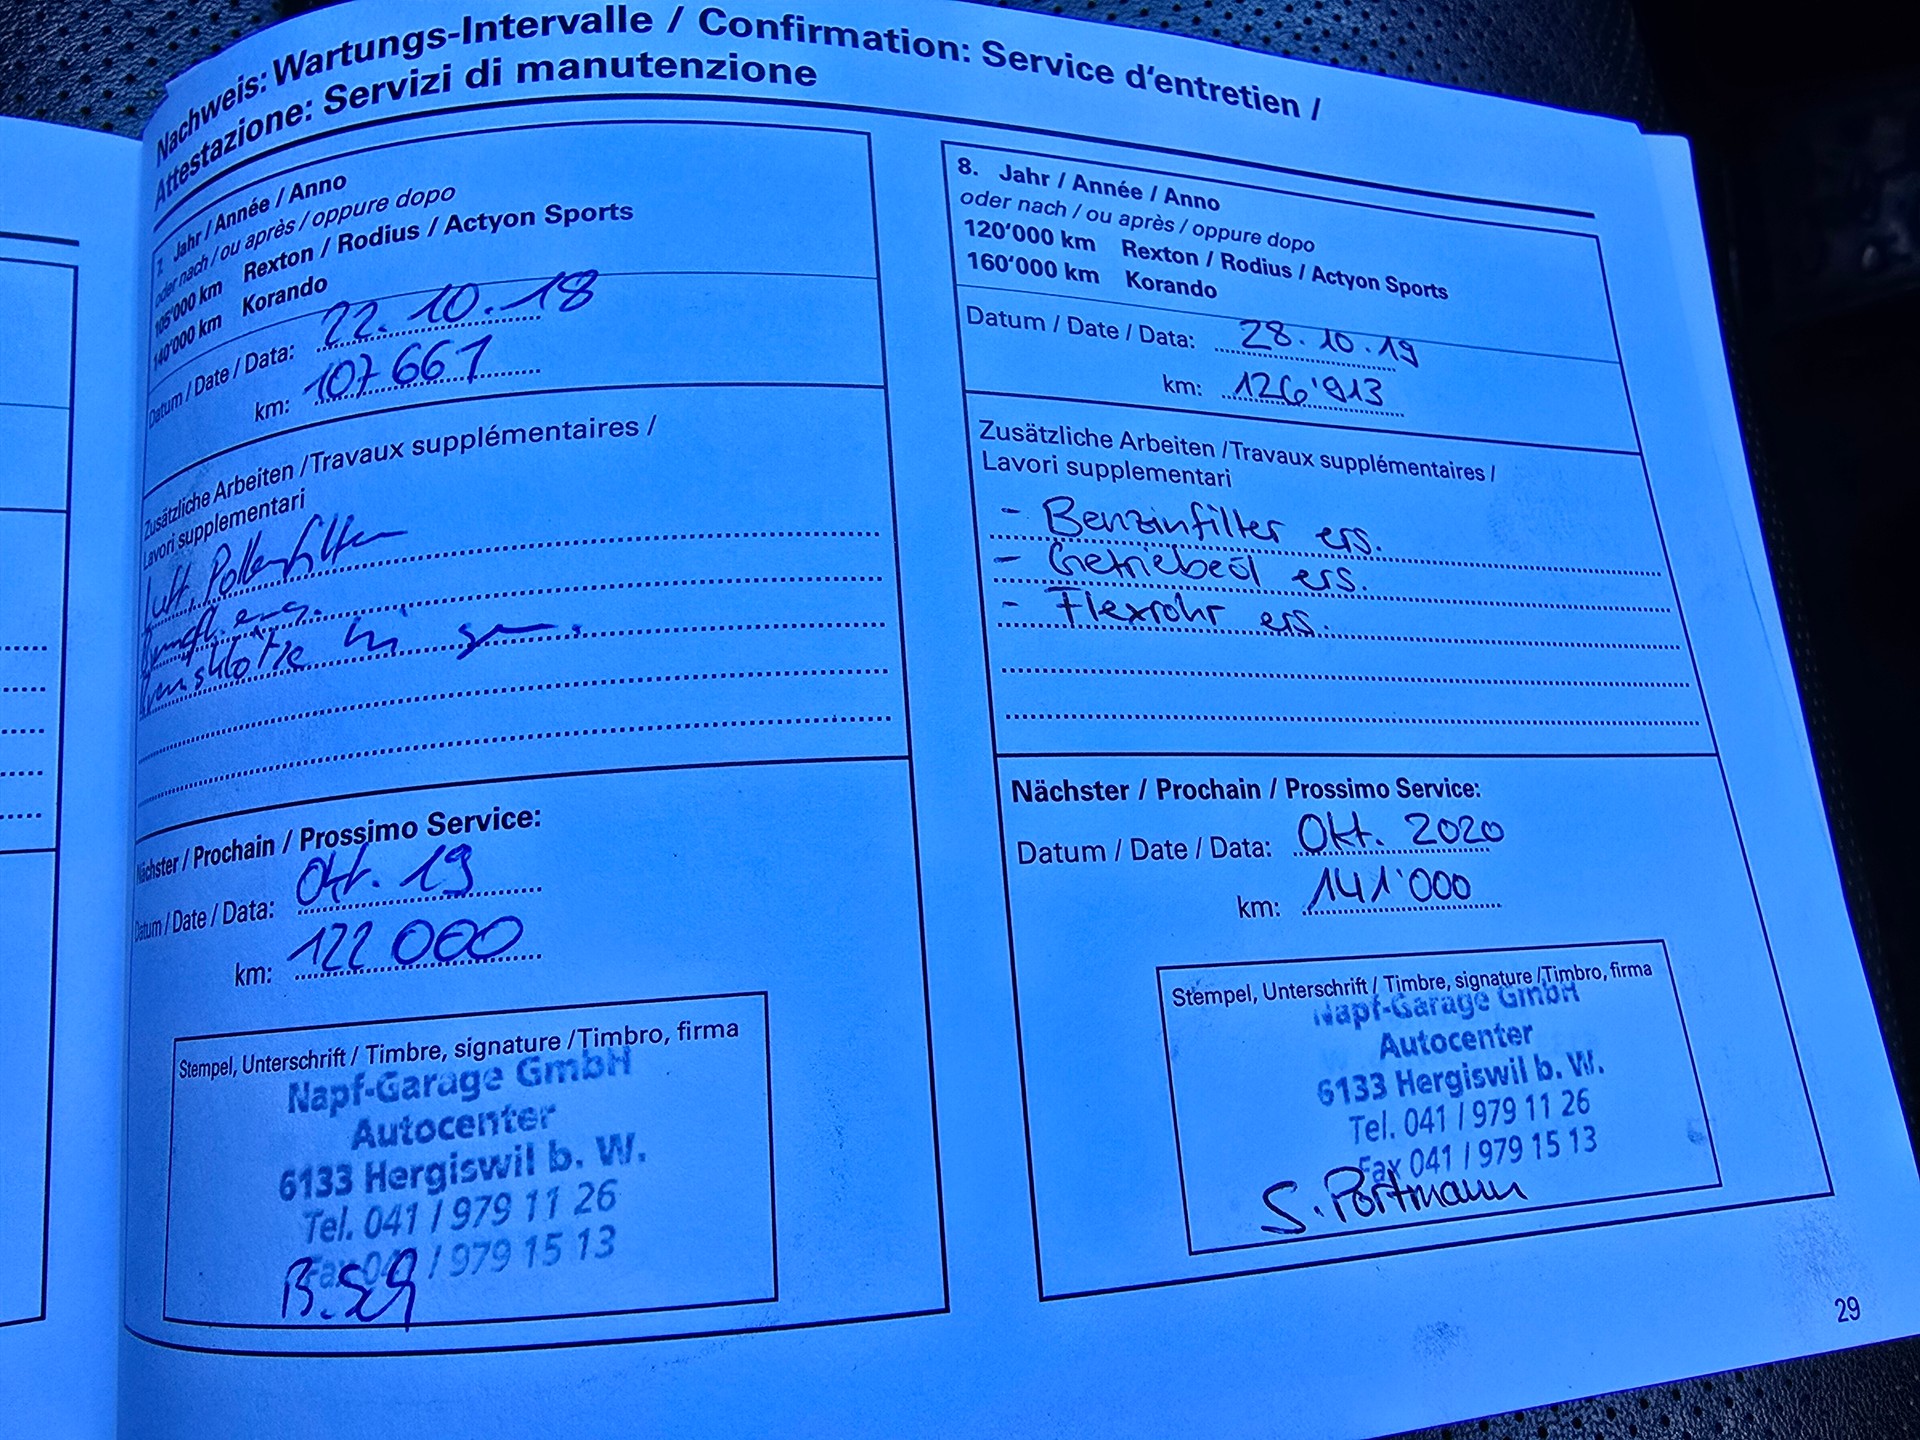 Nachweis: Wartungs-Intervalle / Confirmation: Service d'entretien /
Attestazione: Servizi di manutenzione
7. Jahr / Année / Anno
oder nach / ou après / oppure dopo
105'000 km Rexton / Rodius / Actyon Sports
140'000 km Korando
Datum / Date / Data: 22.10.18
km: 107661
Zusätzliche Arbeiten / Travaux supplémentaires /
Lavori supplementari
Luft, Pollenfilter
Nächster / Prochain / Prossimo Service:
Datum / Date / Data: Okt. 19
km: 122 000
Stempel, Unterschrift / Timbre, signature / Timbro, firma
Napf-Garage GmbH
Autocenter
6133 Hergiswil b. W.
Tel. 041 / 979 11 26
Fax 041 / 979 15 13
8. Jahr / Année / Anno
oder nach / ou après / oppure dopo
120'000 km Rexton / Rodius / Actyon Sports
160'000 km Korando
Datum / Date / Data: 28.10.19
km: 126'913
Zusätzliche Arbeiten / Travaux supplémentaires /
Lavori supplementari
- Benzinfilter ers.
- Getriebeöl ers.
- Flexrohr ers.
Nächster / Prochain / Prossimo Service:
Datum / Date / Data: Okt. 2020
km: 141'000
Stempel, Unterschrift / Timbre, signature / Timbro, firma
Napf-Garage GmbH
Autocenter
6133 Hergiswil b. W.
Tel. 041 / 979 11 26
Fax 041 / 979 15 13
S. Portmann
29